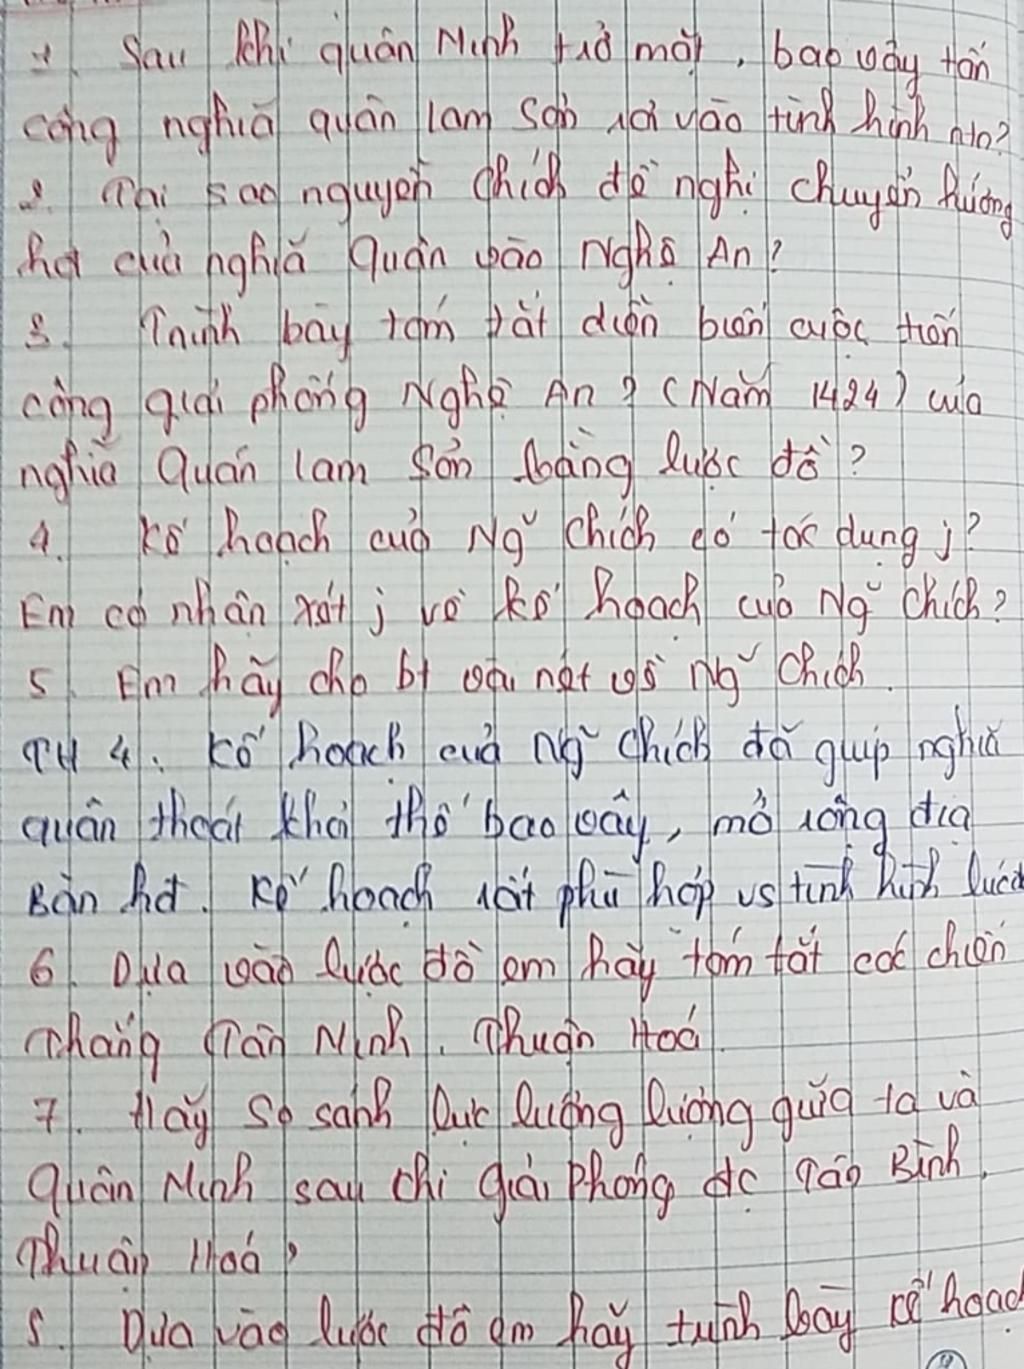 1. Sau khi quân Minh trở mặt, bao vây tấn
công nghĩa quân lam Sơn rơi vào tình hình nào?
2. Tại sao nguyễn Chích đề nghị chuyển hướng
hđ của nghĩa Quân vào Nghệ An?
3. Trình bày tóm tắt diễn biến cuộc tiến
công giải phóng Nghệ An? (Năm 1424) của
nghĩa Quân lam Sơn bằng lược đồ?
4. Kế hoạch của Ng~ Chích có tác dụng j?
Em có nhận xét j về kế hoạch của Ng~ Chích?
5. Em hãy cho bt vài nét về Ng~ Chích.
TH 4. Kế hoạch của ng~ chích đã giúp nghĩa
quân thoát khỏi thế bao vây, mở rộng địa
Bàn hđ. Kế hoạch rất phù hợp vs tình hình lúc đ
6. Dựa vào lược đồ em hãy tóm tắt các chiến
Thắng Tân Ninh, Thuận Hoá
7. Hãy So sánh lực lượng lượng giữa ta và
Quân Minh sau chi giải Phóng đc Tân Bình,
Thuận Hoá?
8. Dựa vào lược đồ em hãy trình bày kế hoạch